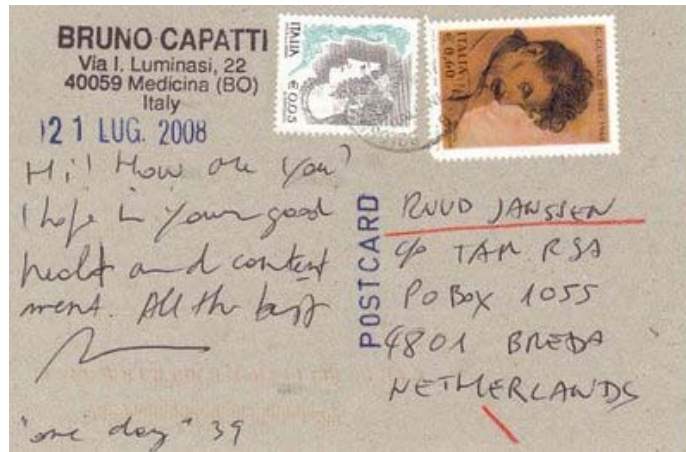 BRUNO CAPATTI
Via I. Luminasi, 22
40059 Medicina (BO)
Italy
21 LUG. 2008
Hi! How are you?
I hope in your good
healt and content
ment. All the best
"one day" 39
ITALIA
€ 0,05
ITALIA
€ 0,60
POSTCARD
RUUD JANSSEN
c/o TAM RSA
PO BOX 1055
4801 BREDA
NETHERLANDS